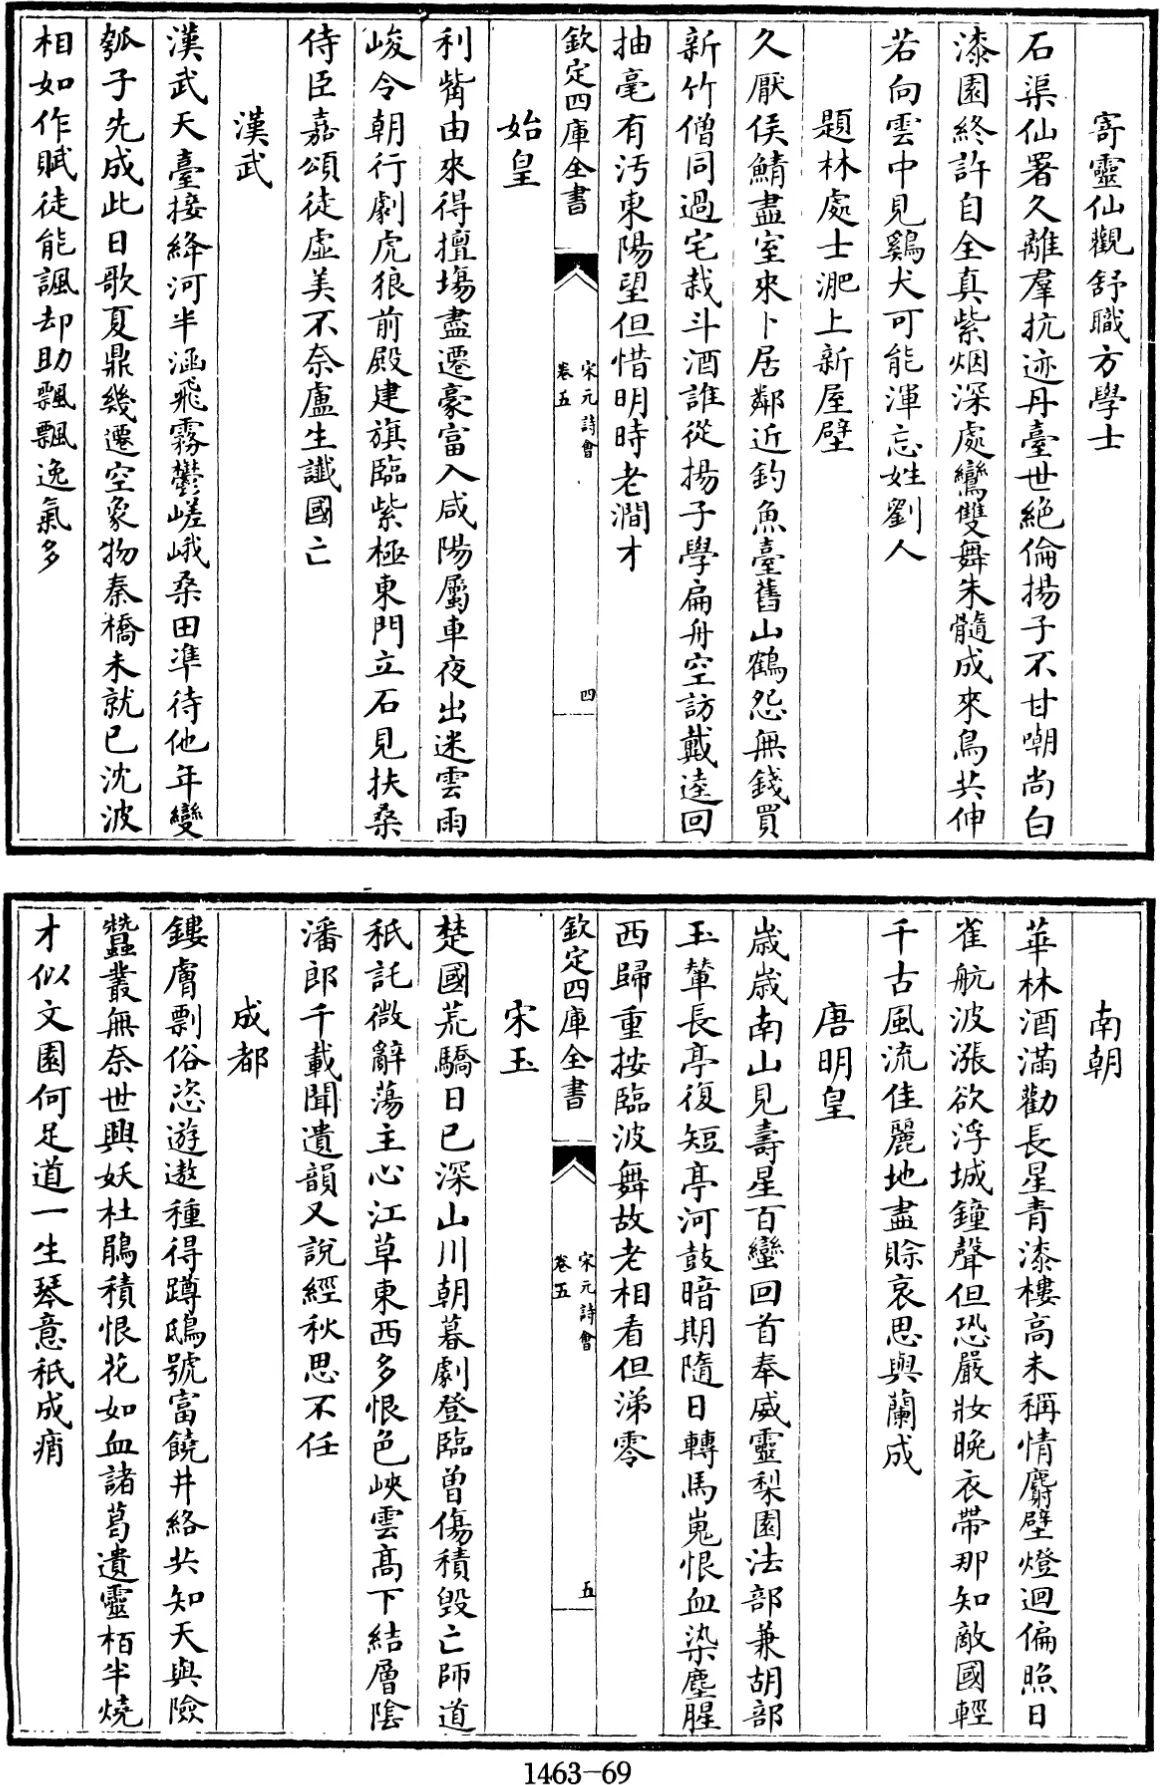 寄靈仙觀舒職方學士
石渠仙署久離羣抗迹丹臺世絶倫揚子不甘嘲尚白
漆園終許自全真紫烟深處鸞雙舞朱髓成來鳥共伸
若向雲中見鷄犬可能渾忘姓劉人
題林處士淝上新屋壁
久厭侯鯖盡室來卜居鄰近釣魚臺舊山鶴怨無錢買
新竹僧同過宅栽斗酒誰從揚子學扁舟空訪戴逵回
抽毫有汚東陽望但惜明時老澗才
欽定四庫全書
宋元詩會
卷五
四
始皇
利觜由來得擅塲盡遷豪富入咸陽屬車夜出迷雲雨
峻令朝行劇虎狼前殿建旗臨紫極東門立石見扶桑
侍臣嘉頌徒虛美不奈盧生讖國亡
漢武
漢武天臺接絳河半涵飛霧鬱嵯峨桑田準待他年變
瓠子先成此日歌夏鼎幾遷空象物秦橋未就已沈波
相如作賦徒能諷却助飄飄逸氣多
南朝
華林酒滿勸長星青漆樓高未稱情麝壁燈迴偏照日
雀航波漲欲浮城鐘聲但恐嚴妝晚衣帶那知敵國輕
千古風流佳麗地盡賖哀思與蘭成
唐明皇
歲歲南山見壽星百蠻回首奉威靈梨園法部兼胡部
玉輦長亭復短亭河鼓暗期隨日轉馬嵬恨血染塵腥
西歸重按臨波舞故老相看但涕零
欽定四庫全書
宋元詩會
卷五
五
宋玉
楚國荒驕日已深山川朝暮劇登臨曽傷積毁亡師道
秪託微辭蕩主心江草東西多恨色峽雲高下結層陰
潘郎千載聞遺韻又說經秋思不任
成都
鏤膚剽俗恣遊遨種得蹲鴟號富饒井絡共知天與險
蠶叢無奈世興妖杜鵑積恨花如血諸葛遺靈栢半燒
才似文園何足道一生琴意秪成痟
1463—69